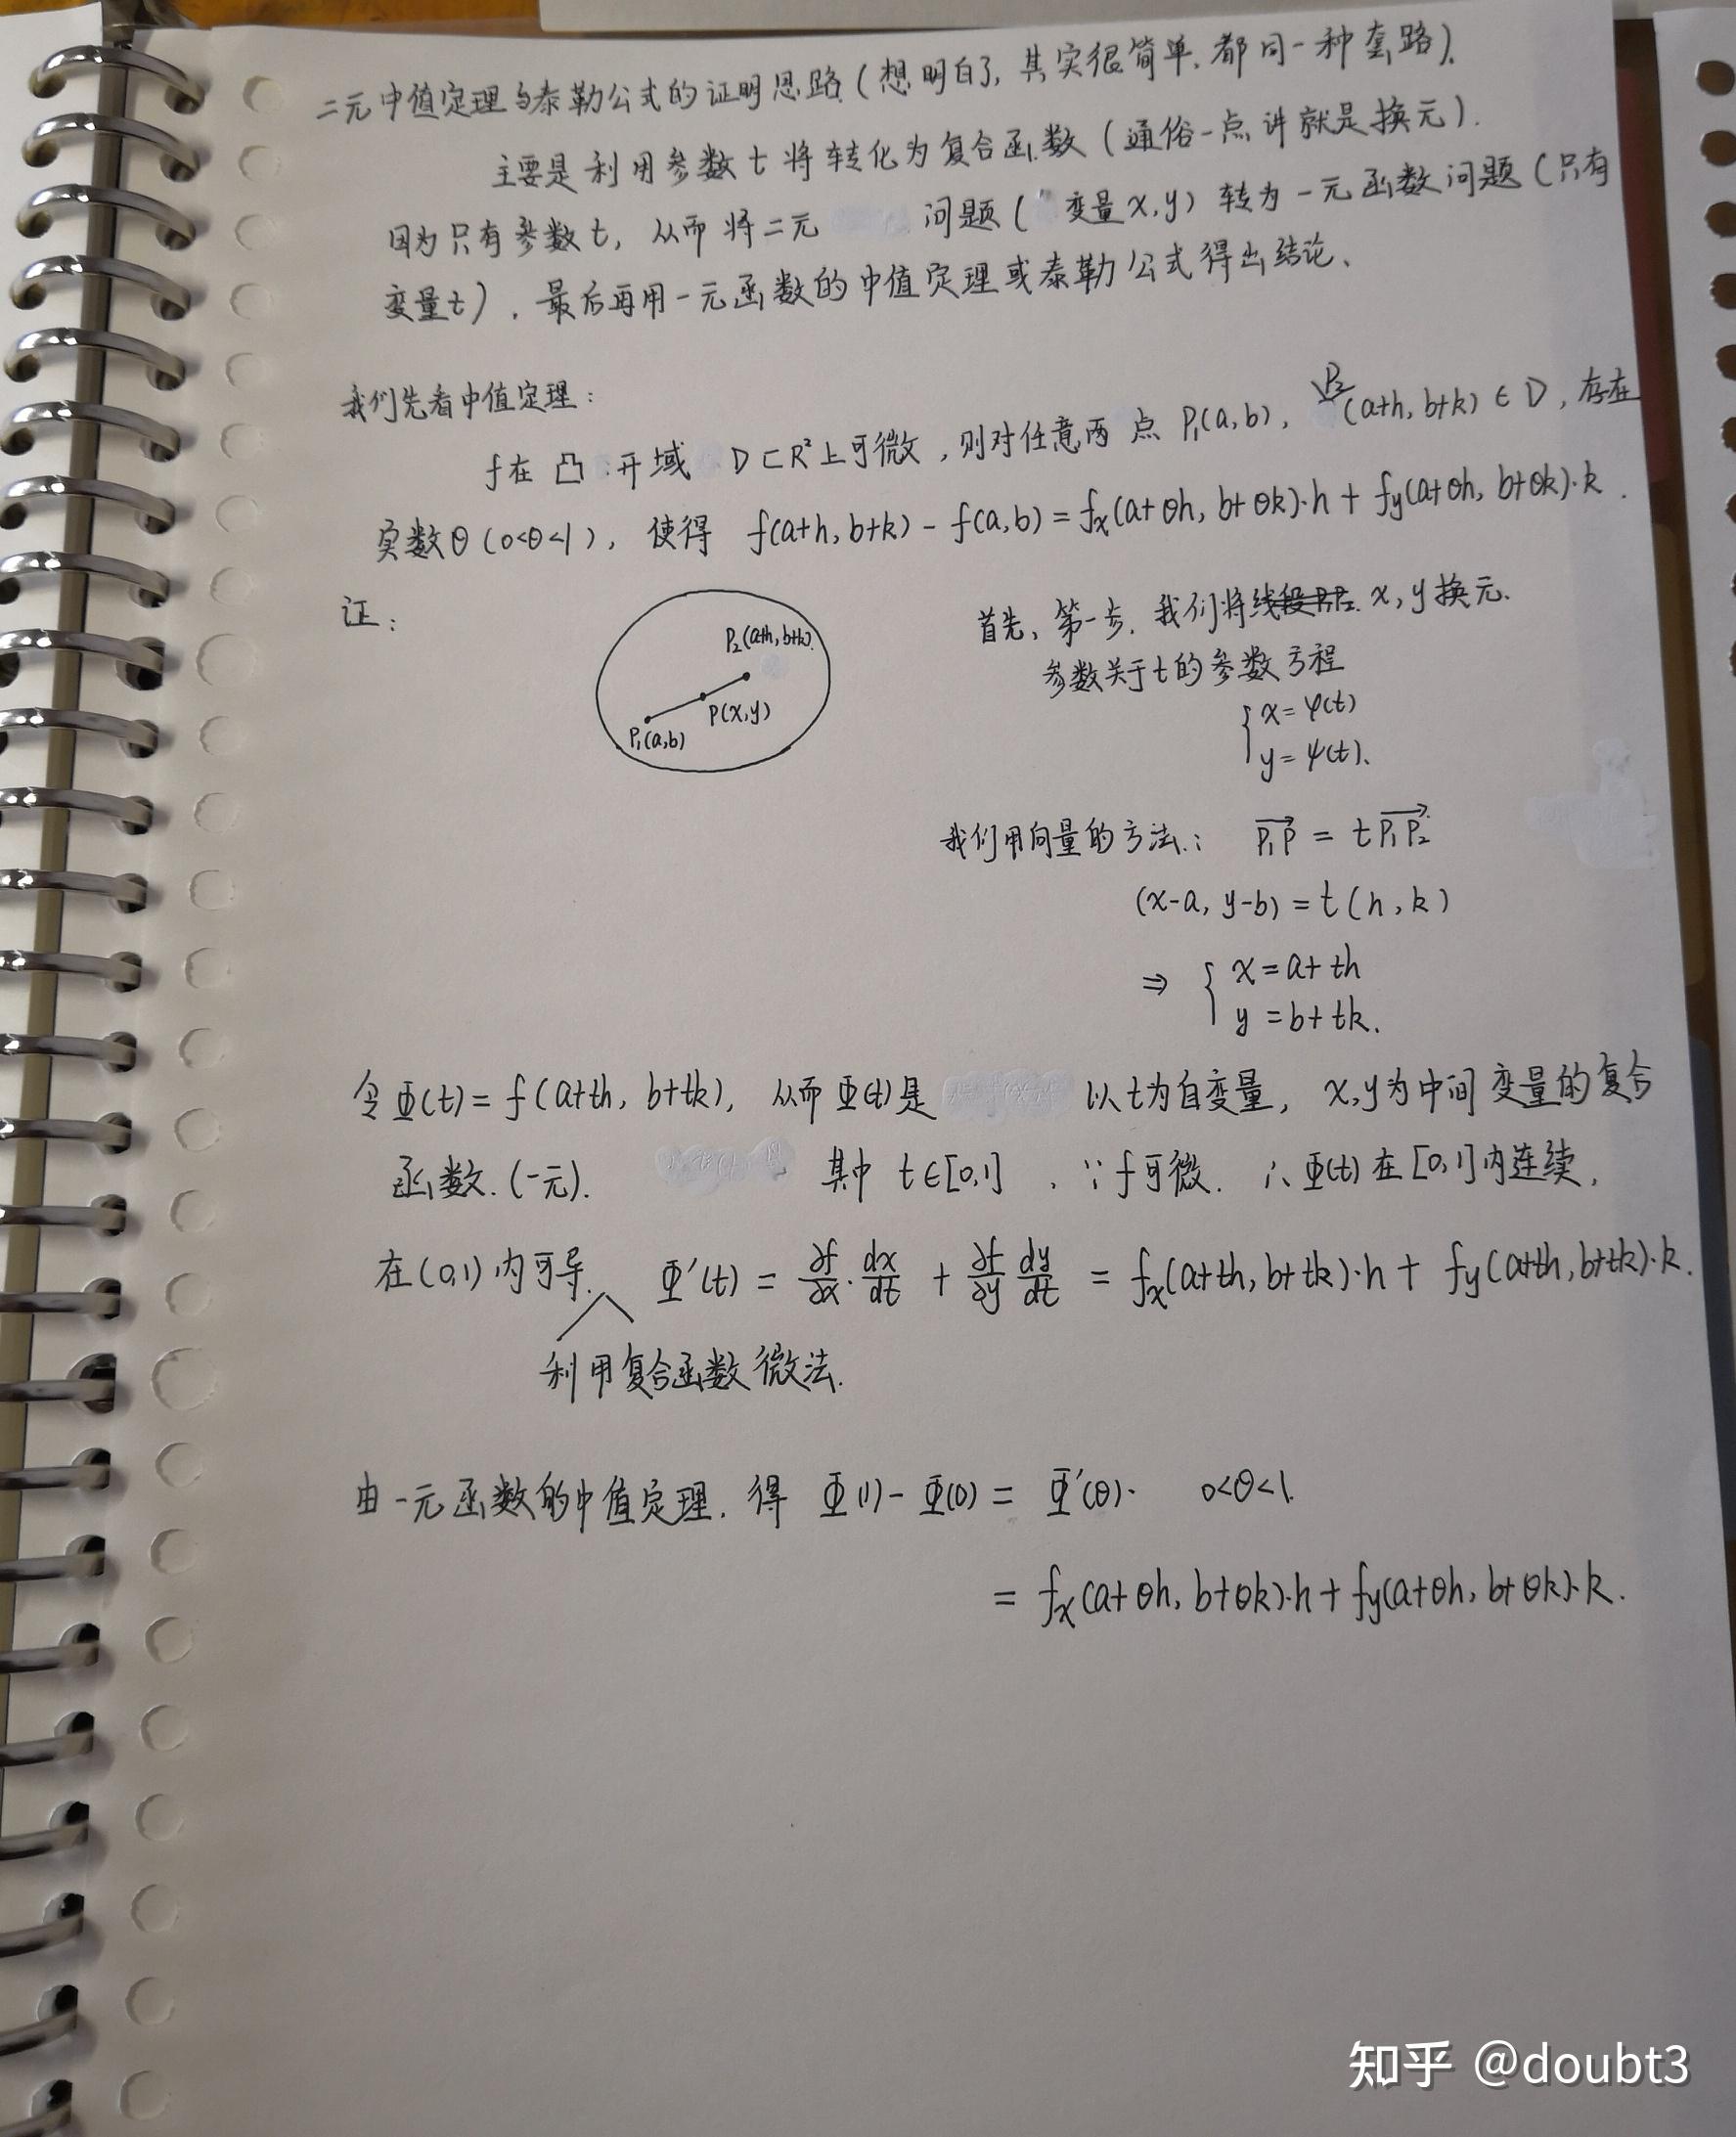 二元中值定理与泰勒公式的证明思路(想明白了,其实很简单,都同一种套路).
主要是利用参数t将转化为复合函数(通俗一点讲就是换元).
因为只有参数t,从而将二元 问题( 变量x,y)转为一元函数问题(只有
变量t),最后再用一元函数的中值定理或泰勒公式得出结论、
我们先看中值定理:
f在凸开域 D⊂R²上可微,则对任意两点P₁(a,b), P₂(a+h,b+k)∈D,存在
实数θ(0<θ<1),使得 f(a+h,b+k)-f(a,b)=fx(a+θh,b+θk)·h+fy(a+θh,b+θk)·k.
证:
P₂(a+h,b+k)
P(x,y)
P₁(a,b)
首先、第一步,我们将 x,y换元.
参数关于t的参数方程
{x=φ(t)
y=ψ(t).
我们用向量的方法: P₁P→ = tP₁P₂→
(x-a, y-b)=t(h,k)
⇒ {x=a+th
y=b+tk.
令Φ(t)=f(a+th, b+tk), 从而Φ(t)是 以t为自变量, x,y为中间变量的复合
函数.(一元). 其中 t∈[0,1] , ∵f可微. ∴Φ(t)在[0,1]内连续,
在(0,1)内可导. Φ'(t) = ∂f/∂x·dx/dt + ∂f/∂y dy/dt = fx(a+th,b+tk)·h+ fy(a+th,b+tk)·k.
利用复合函数微法.
由一元函数的中值定理.得 Φ(1)-Φ(0)= Φ'(θ)· 0<θ<1.
= fx(a+θh, b+θk)·h+fy(a+θh, b+θk)·k.
知乎 @doubt3